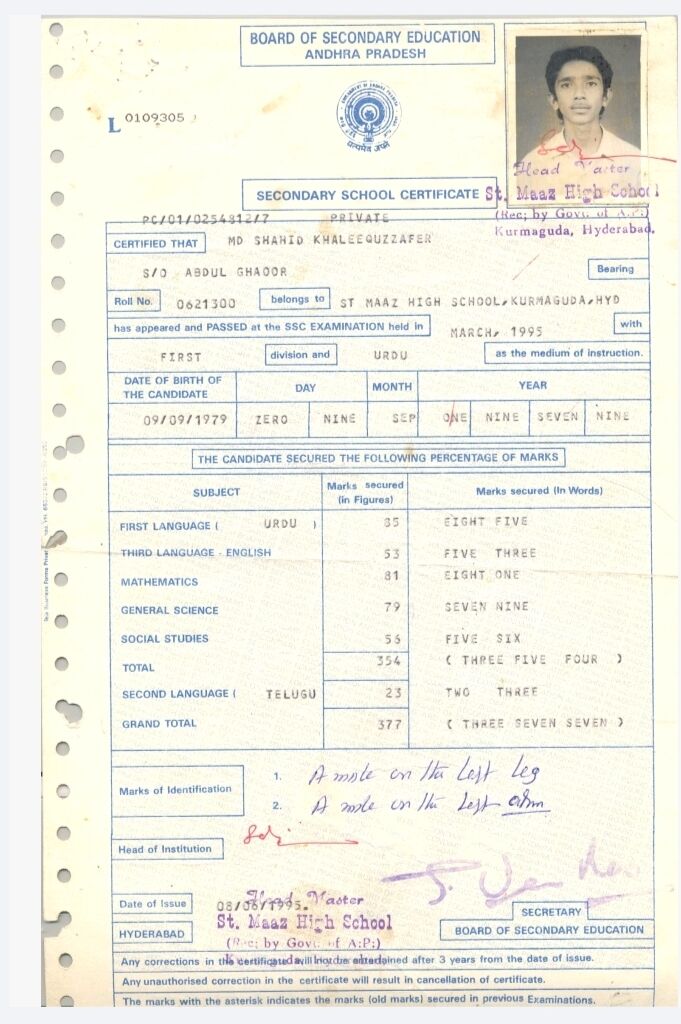 BOARD OF SECONDARY EDUCATION
ANDHRA PRADESH
L 0109305
Head Master
SECONDARY SCHOOL CERTIFICATE St. Maaz High School
PC/01/0254812/7 PRIVATE (Rec; by Govt. of A.P.:)
Kurmaguda, Hyderabad.
CERTIFIED THAT MD SHAHID KHALEEQUZZAFER
S/O ABDUL GHAOOR Bearing
Roll No. 0621300 belongs to ST MAAZ HIGH SCHOOL,KURMAGUDA,HYD
has appeared and PASSED at the SSC EXAMINATION held in MARCH, 1995 with
FIRST division and URDU as the medium of instruction.
DATE OF BIRTH OF THE CANDIDATE DAY MONTH YEAR
09/09/1979 ZERO NINE SEP ONE NINE SEVEN NINE
THE CANDIDATE SECURED THE FOLLOWING PERCENTAGE OF MARKS
SUBJECT Marks secured (in Figures) Marks secured (In Words)
FIRST LANGUAGE ( URDU ) 85 EIGHT FIVE
THIRD LANGUAGE - ENGLISH 53 FIVE THREE
MATHEMATICS 81 EIGHT ONE
GENERAL SCIENCE 79 SEVEN NINE
SOCIAL STUDIES 56 FIVE SIX
TOTAL 354 ( THREE FIVE FOUR )
SECOND LANGUAGE ( TELUGU 23 TWO THREE
GRAND TOTAL 377 ( THREE SEVEN SEVEN )
Marks of Identification
1. A mole on the Left Leg
2. A mole on the Left arm
Head of Institution
Date of Issue 08/06/1995.
Head Master
St. Maaz High School
SECRETARY
HYDERABAD BOARD OF SECONDARY EDUCATION
(Rec; by Govt. of A:P:)
Any corrections in the certificate will not be entertained after 3 years from the date of issue.
Any unauthorised correction in the certificate will result in cancellation of certificate.
The marks with the asterisk indicates the marks (old marks) secured in previous Examinations.